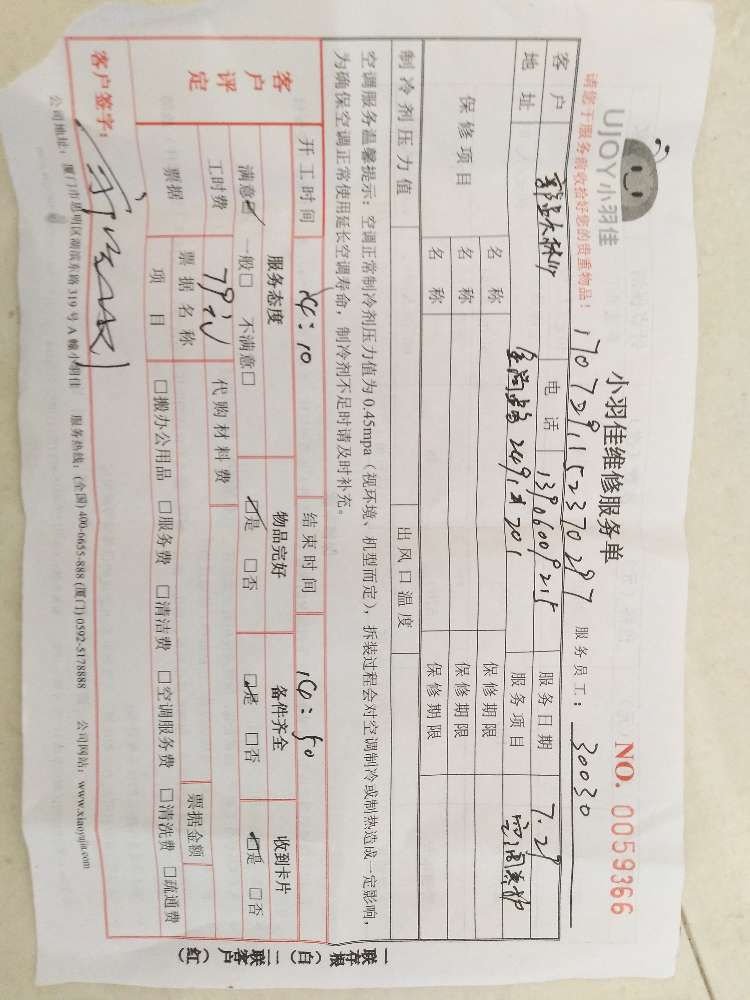 UJOY小羽佳
请您于服务前收拾好您的贵重物品！
小羽佳维修服务单
NO. 0059366
170729115237 0297
服务员工： 30030
客户 电话 13906009215 服务日期 7.29
地址 201 服务项目 空调养护
保修项目 名称 保修期限
名称 保修期限
名称 保修期限
制冷剂压力值 出风口温度
空调服务温馨提示：空调正常制冷剂压力值为0.45mpa（视环境、机型而定），拆装过程会对空调制冷或制热造成一定影响，
为确保空调正常使用延长空调寿命，制冷剂不足时请及时补充。
开工时间 14:10 结束时间 16:50
客户评定 服务态度 物品完好 备件齐全 收到卡片
满意☑ 一般□ 不满意□ ☑是 □否 ☑是 □否 ☑是 □否
工时费 79元 代购材料费
票据 票据名称 票据金额
项目 □搬办公用品 □服务费 □清洁费 □空调服务费 □清洗费 □疏通费
客户签字：
公司地址：厦门市思明区湖滨东路319号A幢小羽佳 服务热线：(全国) 400-6655-888 (厦门) 0592-5178888 公司网站：www.xiaoyujia.com
一联存根（白） 二联客户（红）